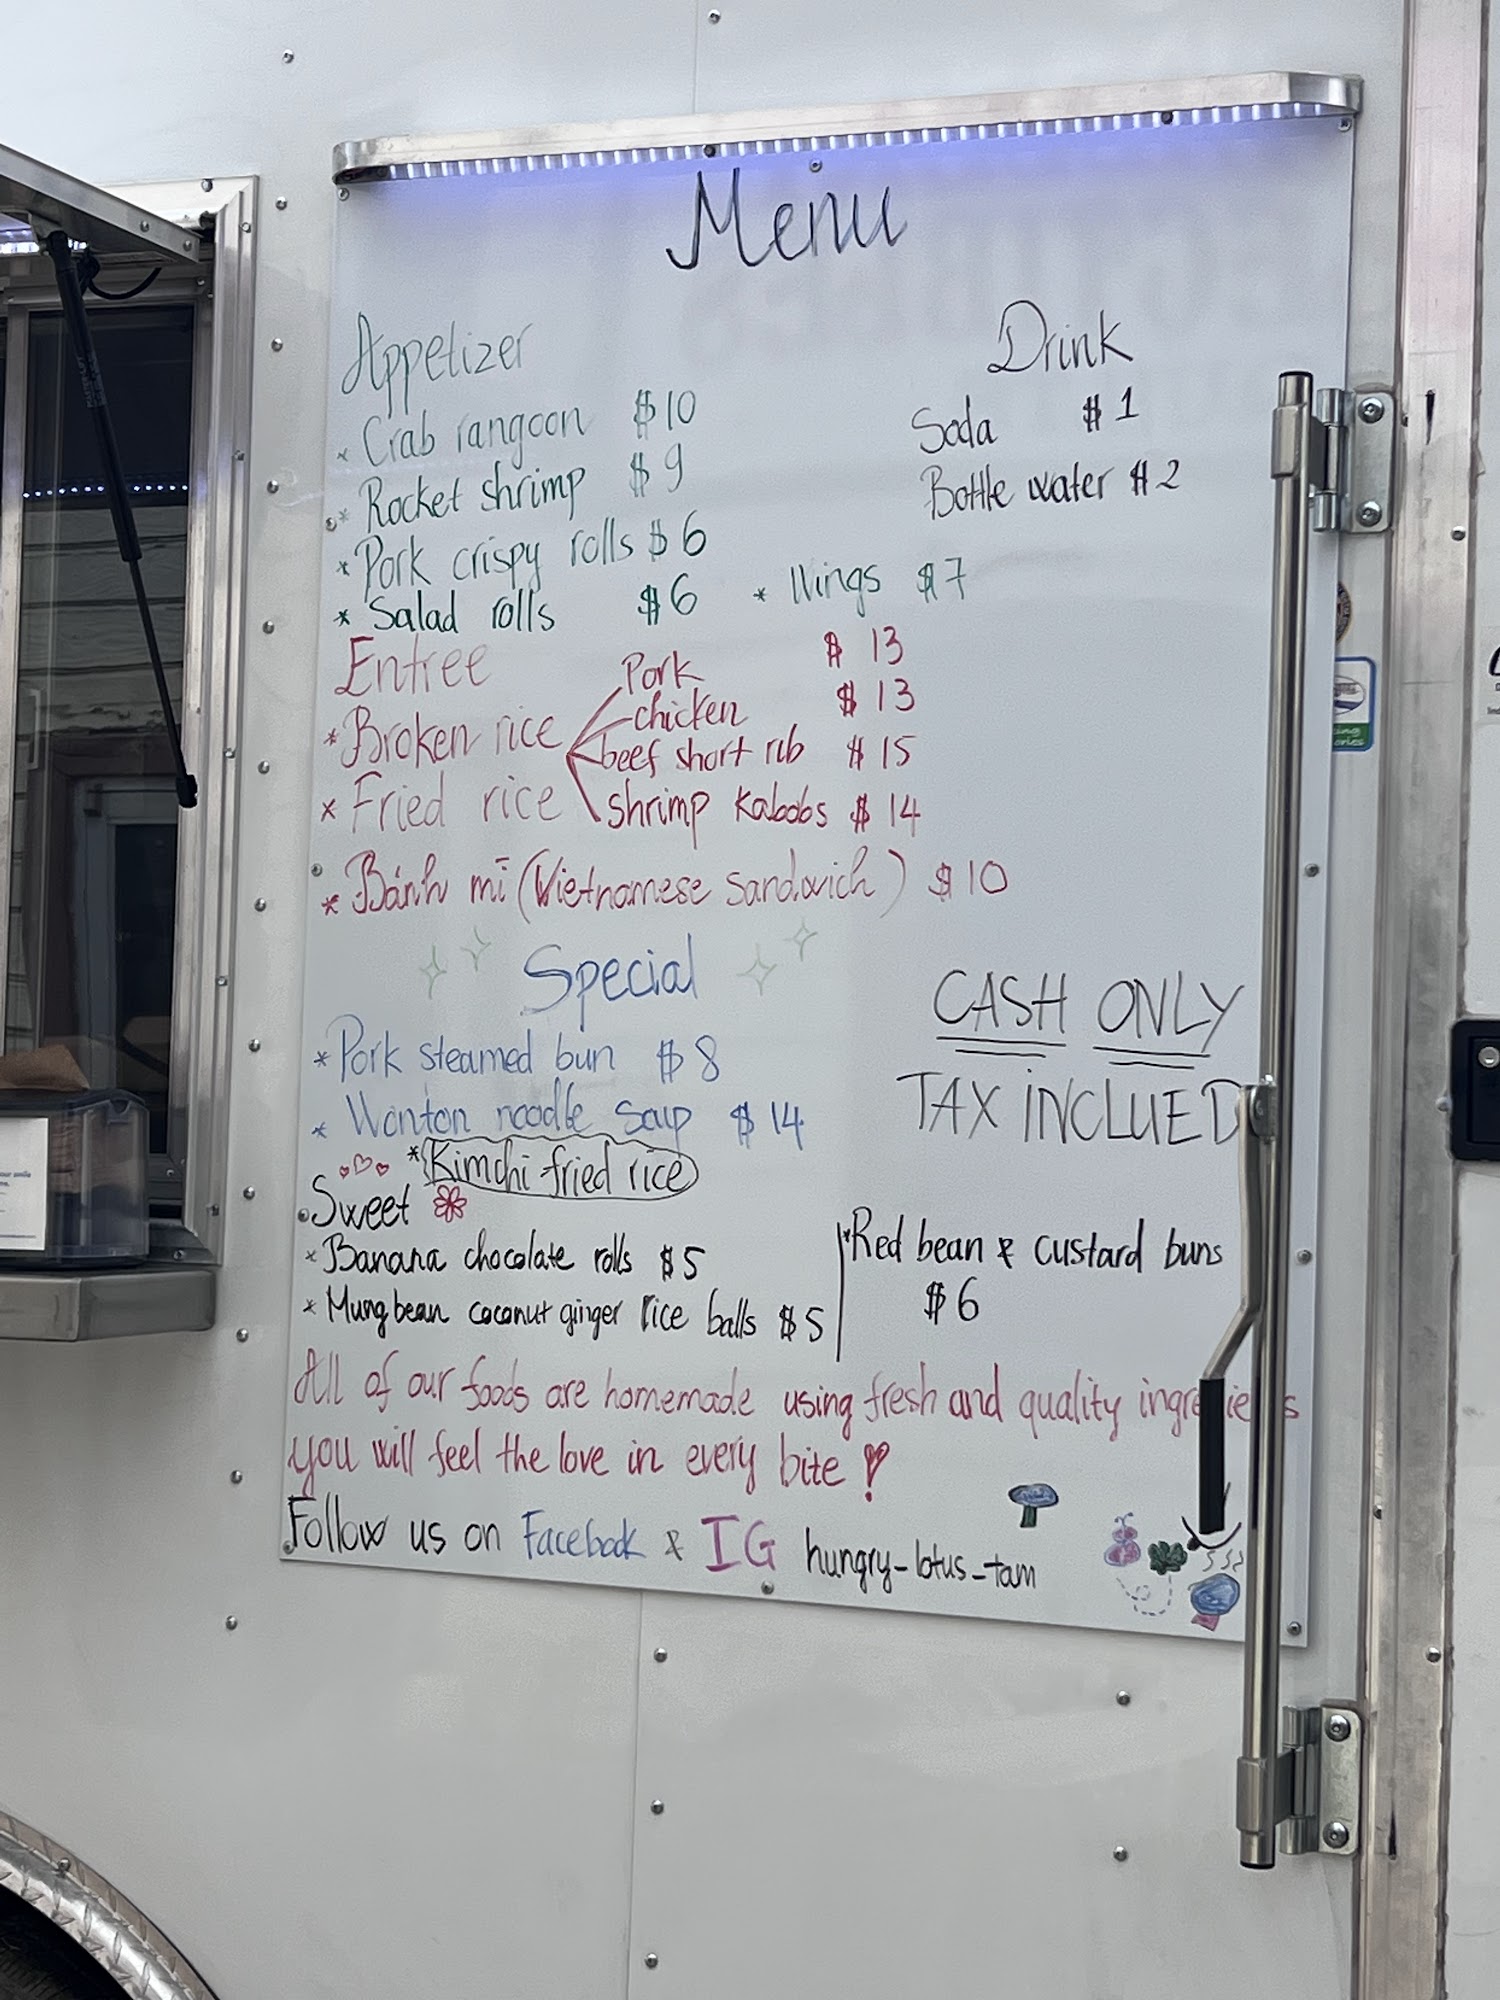 Menu
Appetizer
* Crab rangoon $10
* Rocket shrimp $9
* Pork crispy rolls $6
* Salad rolls $6
* Wings $7
Drink
Soda $1
Bottle water $2
Entree
* Broken rice
* Fried rice
Pork $13
chicken $13
beef short rib $15
shrimp kabobs $14
* Bánh mī (Vietnamese sandwich) $10
Special
* Pork steamed bun $8
* Wonton noodle soup $14
* Kimchi fried rice
CASH ONLY
TAX INCLUED
Sweet
* Banana chocolate rolls $5
* Mung bean coconut ginger rice balls $5
* Red bean & custard buns
$6
All of our foods are homemade using fresh and quality ingredients
you will feel the love in every bite !
Follow us on Facebook & IG hungry-lotus-tam